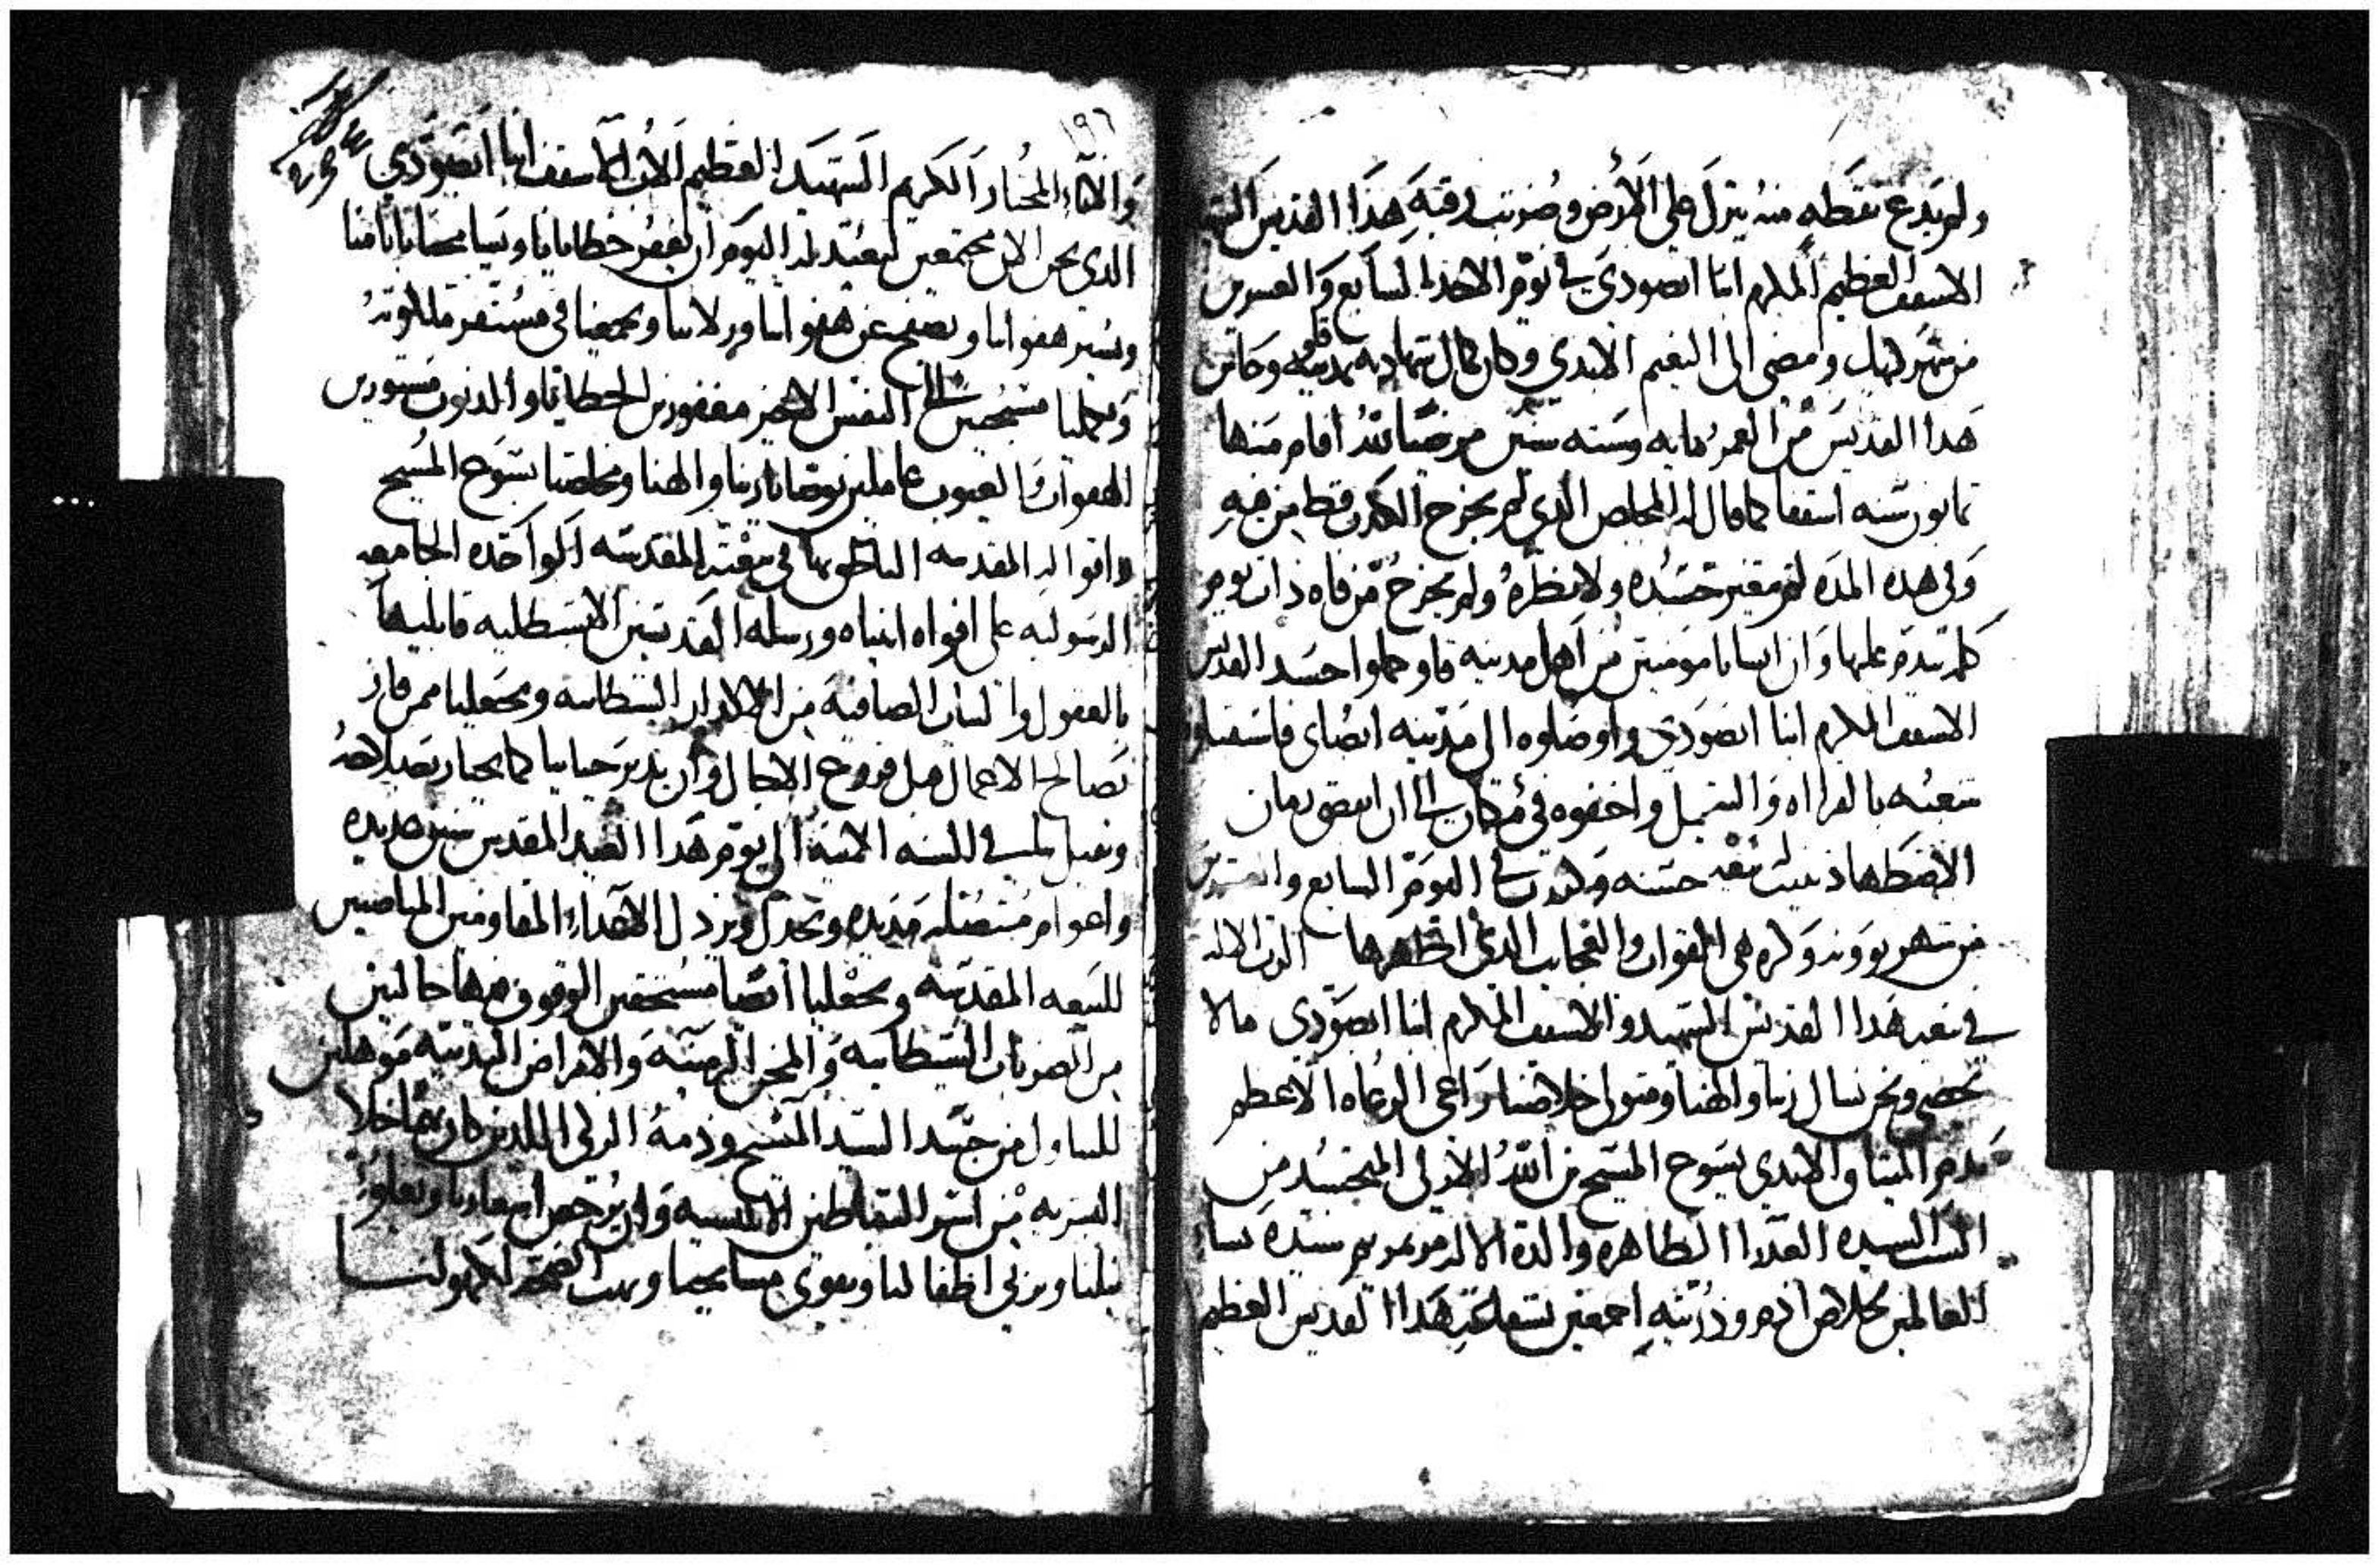 ولم يدع نقطه منه ينزل على الارض وضربت رقبة هذا القديس
الاسقف العظيم المكرم انبا ابصودى في يوم الاحد السابع والعشرين
من شهر كيهك ومضى الى النعيم الابدي وكان كمال شهادته وكان
هذا القديس من العمر مايه وسته سنين مرضيا لله اقام منها
ثمانون سنه اسقفا كما قال له المخلص الذي لم يخرج الكدب قط من فيه
وفى هده المده لم يتغير جسده ولا نظره ولم يخرج من فاه ذات يوم
كلمه يندم عليها وان اناسا مومنين من اهل مدينه قاو حملوا جسد القديس
الاسقف المكرم انبا ابصودى واوصلوه الى مدينه ابصاى
شعبه بالقراه والترتيل واخفوه في مكان الى ان انقضى زمان
الاضطهاد بنيت بيعه حسنه وكرزت في اليوم السابع والعشرين
من شهر بوونه وكثره هى القوات والعجايب الذي اظهرها الرب الاله
في بيعه هذا القديس الشهيد والاسقف المكرم انبا ابصودى ما لا
تحصى ونحن نسال ربنا والهنا ومتولى خلاصنا راعى الرعاه الاعظم
الابدى يسوع المسيح بن الله الازلى المتجسد من
الست السيده العذرا الطاهره والدة الاله مرتمريم سيدة نسا
العالمين لخلاص ادم وذريته اجمعين بشفاعة هذا القديس العظيم
١٩٦
والاناء المختار الكريم الشهيد العظيم الاب الاسقف انبا ابصودي
الدي نحن الان مجتمعين لنعيد له اليوم ان يغفر خطايانا وينسا
ويستر هفواتنا ويصفح عن هفواتنا وزلاتنا ويجمعنا في مستقر ملكوته
مسيحيين الى النفس الاخير مغفورين الخطايا والدنوب مستورين
الهفوات والعيوب عاملين بوصايا ربنا والهنا ومخلصنا يسوع المسيح
واقواله المقدسه الناطق بها في بيعته المقدسه الواحده الجامعه
الرسوليه على افواه انبياه ورسله القديسين
بالعقول والنيات الصافيه من الاكدار الشيطانيه ويجعلنا ممن فاز
بصالح الاعمال قبل فروغ الاجال وان يدبر حياتنا كما يختار
الى يوم هذا العيد المقدس سنين عديده
واعوام متصله مديده ويخذل ويرذل الاعداء المقاومين المناصبين
للبيعه المقدسه ويجعلنا ايضا مستحقين الوقوف فيها خاليين
من الضربات الشيطانيه والمحن الزمنيه والامراض البدنيه موهلين
للتناول من جسد السيد المسيح ودمه الزكى اللدين كان بهما خلاص
البشريه من اسر الشياطين الابليسيه وان يرخص اسعارنا ويعلو
نيلنا ويربي اطفالنا ويقوي مشايخنا ويهب العفه لكهولنا